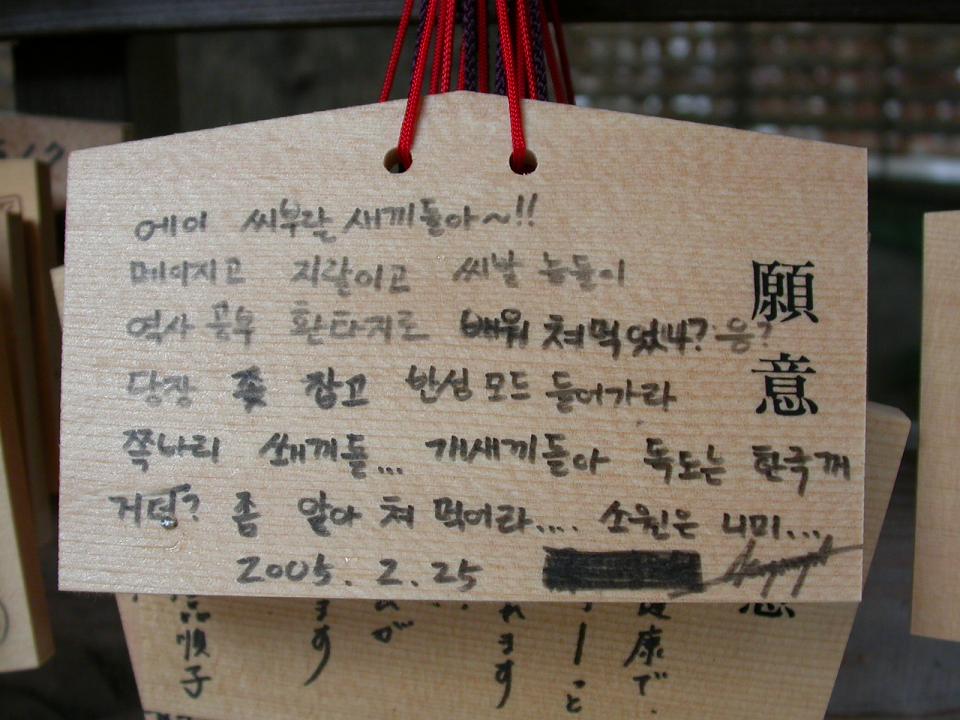 에이 씨부랄 새끼들아~!!
메이지고 지랄이고 씨발 놈들이
역사 공부 환타지로 배워 쳐먹었냐? 응?
당장 좆 잡고 반성모드 들어가라
쪽바리 쌔끼들... 개새끼들아 독도는 한국꺼
거덩? 좀 알아 쳐 먹어라.... 소원은 니미...
2005. 2. 25
願意
康で
れます
ます
順子